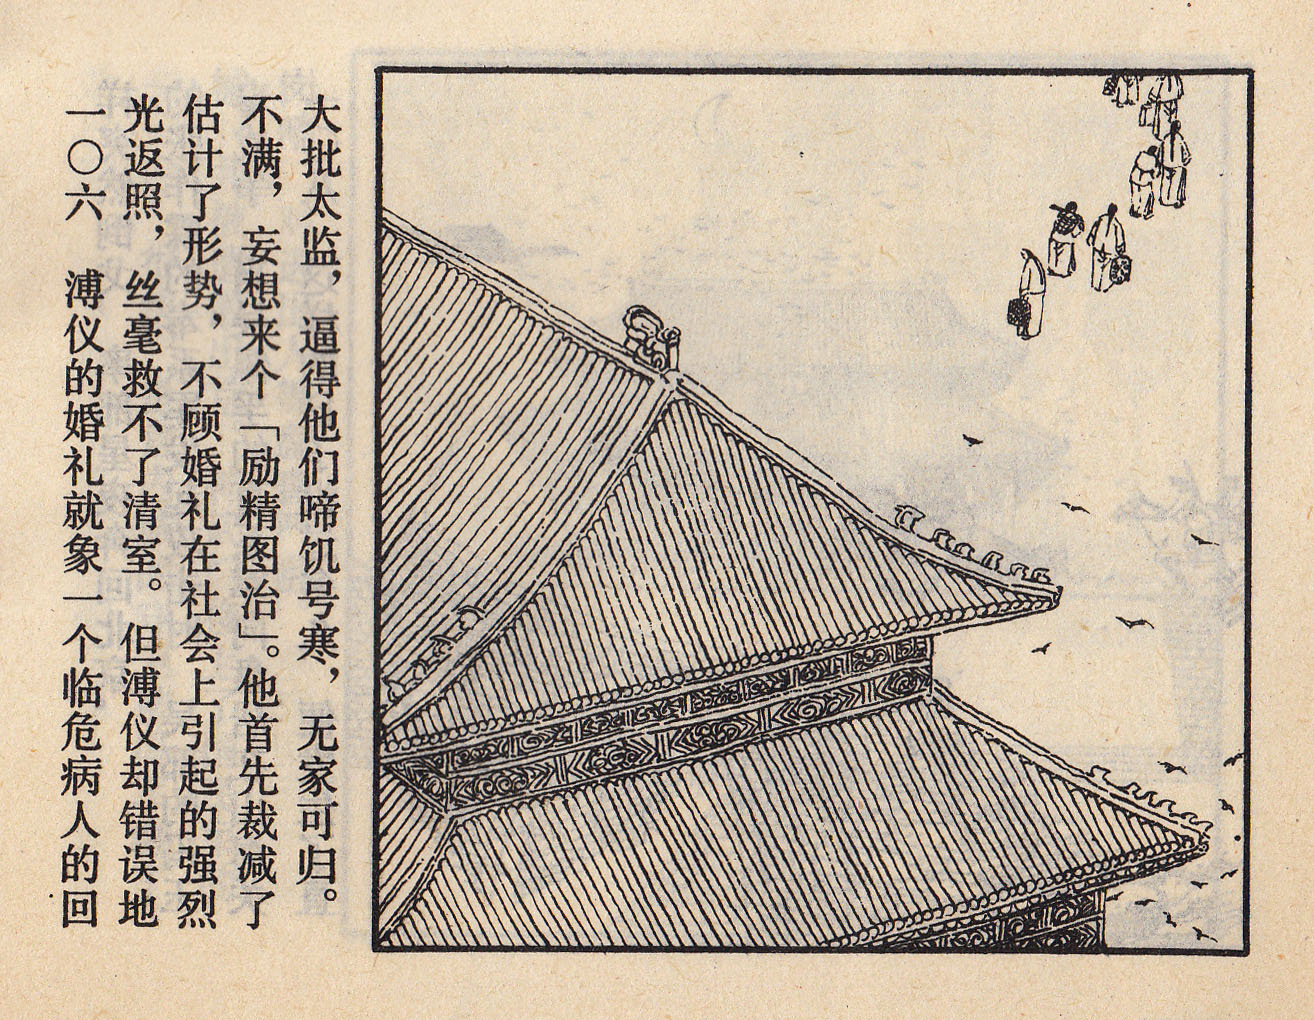 一〇六　溥仪的婚礼就象一个临危病人的回
光返照，丝毫救不了清室。但溥仪却错误地
估计了形势，不顾婚礼在社会上引起的强烈
不满，妄想来个「励精图治」。他首先裁减了
大批太监，逼得他们啼饥号寒，无家可归。